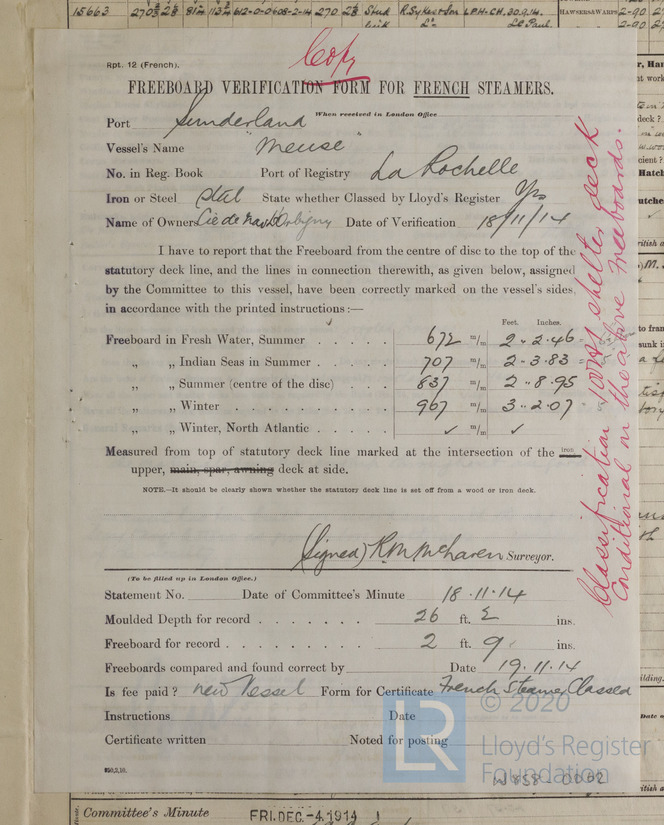 15663 270 2⅝ 81¼ 113¾ 612-0-0 608-2-14 270 2⅝ Stud R. Sykes & Son L.P.H-CH. 30.9.14.
HAWSERS & WARPS 2-90
2-90
Rpt. 12 (French).
Copy
FREEBOARD VERIFICATION FORM FOR FRENCH STEAMERS.
When received in London Office
Port Sunderland
Vessel's Name "Meuse"
No. in Reg. Book Port of Registry La Rochelle
Iron or Steel Steel State whether Classed by Lloyd's Register Yes
Name of Owners Cie de Nav. d'Orbigny Date of Verification 18/11/14
I have to report that the Freeboard from the centre of disc to the top of the
statutory deck line, and the lines in connection therewith, as given below, assigned
by the Committee to this vessel, have been correctly marked on the vessel's sides,
in accordance with the printed instructions :—
Feet. Inches.
Freeboard in Fresh Water, Summer . . . . . 672 m/m 2 - 2.46
„ „ Indian Seas in Summer . . . . 707 m/m 2 - 3.83
„ „ Summer (centre of the disc) . . . 837 m/m 2 - 8.95
„ „ Winter . . . . . . . . . 967 m/m 3 - 2.07
„ „ Winter, North Atlantic . . . . ✓ m/m ✓
Measured from top of statutory deck line marked at the intersection of the iron
upper, main, spar, awning deck at side.
NOTE.—It should be clearly shown whether the statutory deck line is set off from a wood or iron deck.
(Signed) Surveyor.
(To be filled up in London Office.)
Statement No. Date of Committee's Minute 18.11.14
Moulded Depth for record . . . . . . . 26 ft. 2 ins.
Freeboard for record . . . . . . . . . 2 ft. 9 ins.
Freeboards compared and found correct by Date 19.11.14
Is fee paid ? new Vessel Form for Certificate French Steamer Classed
Instructions Date
Certificate written Noted for posting
Classification 100A1 shelter deck
Conditional on the above freeboards.
LR
© 2020
Lloyd's Register
Foundation
W858-0082
Committee's Minute FRI. DEC. -4. 1914